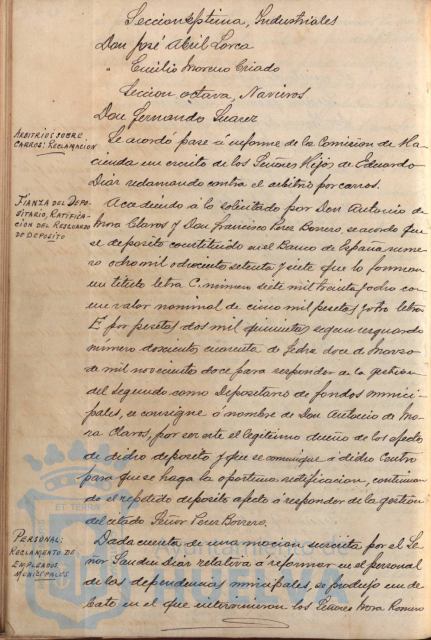 Seccion Septima, Industriales
Don José Abril Lorca
" Emilio Moreno Criado
Seccion octava, Navieros
Don Fernando Suarez
ARBITRIOS SOBRE
CARROS: RECLAMACION
Se acordó pase á informe de la Comision de Ha-
cienda un escrito de los Señores Hijos de Eduardo
Diaz reclamando contra el arbitrio por carros.
FIANZA DEL DEPO-
SITARIO, RATIFICA-
CION DEL RESGUARDO
DE DEPOSITO
Accediendo á lo solicitado por Don Antonio de
Mora Claros y Don Francisco Perez Borrero, se acordo que
el deposito constituido en el Banco de España nume-
ro ocho mil ochocientos setenta y siete que lo forman
un titulo letra C. numero siete mil treinta y ocho con
un valor nominal de cinco mil pesetas y otro letra
E por pesetas dos mil quinientas segun resguardo
número doscientos cuarenta de fecha doce de Marzo
de mil novecientos doce para responder a la gestion
del segundo como Depositario de fondos munici-
pales, se consigne á nombre de Don Antonio de Mo-
ra Claros, por ser este el legitimo dueño de los efectos
de dicho deposito y que se comunique á dicho Centro
para que se haga la oportuna rectificacion, continuan-
do el repetido deposito afecto á responder de la gestion
del citado Señor Perez Borrero.
PERSONAL:
REGLAMENTO DE
EMPLEADOS
MUNICIPALES
Dada cuenta de una mocion suscrita por el Se-
ñor Diaz relativa a reformar en el personal
de las dependencias municipales, se produjo un de-
bate en el que intervinieron los Señores Mora Romero
ET TERRA
Ayuntamiento de
HUELVA